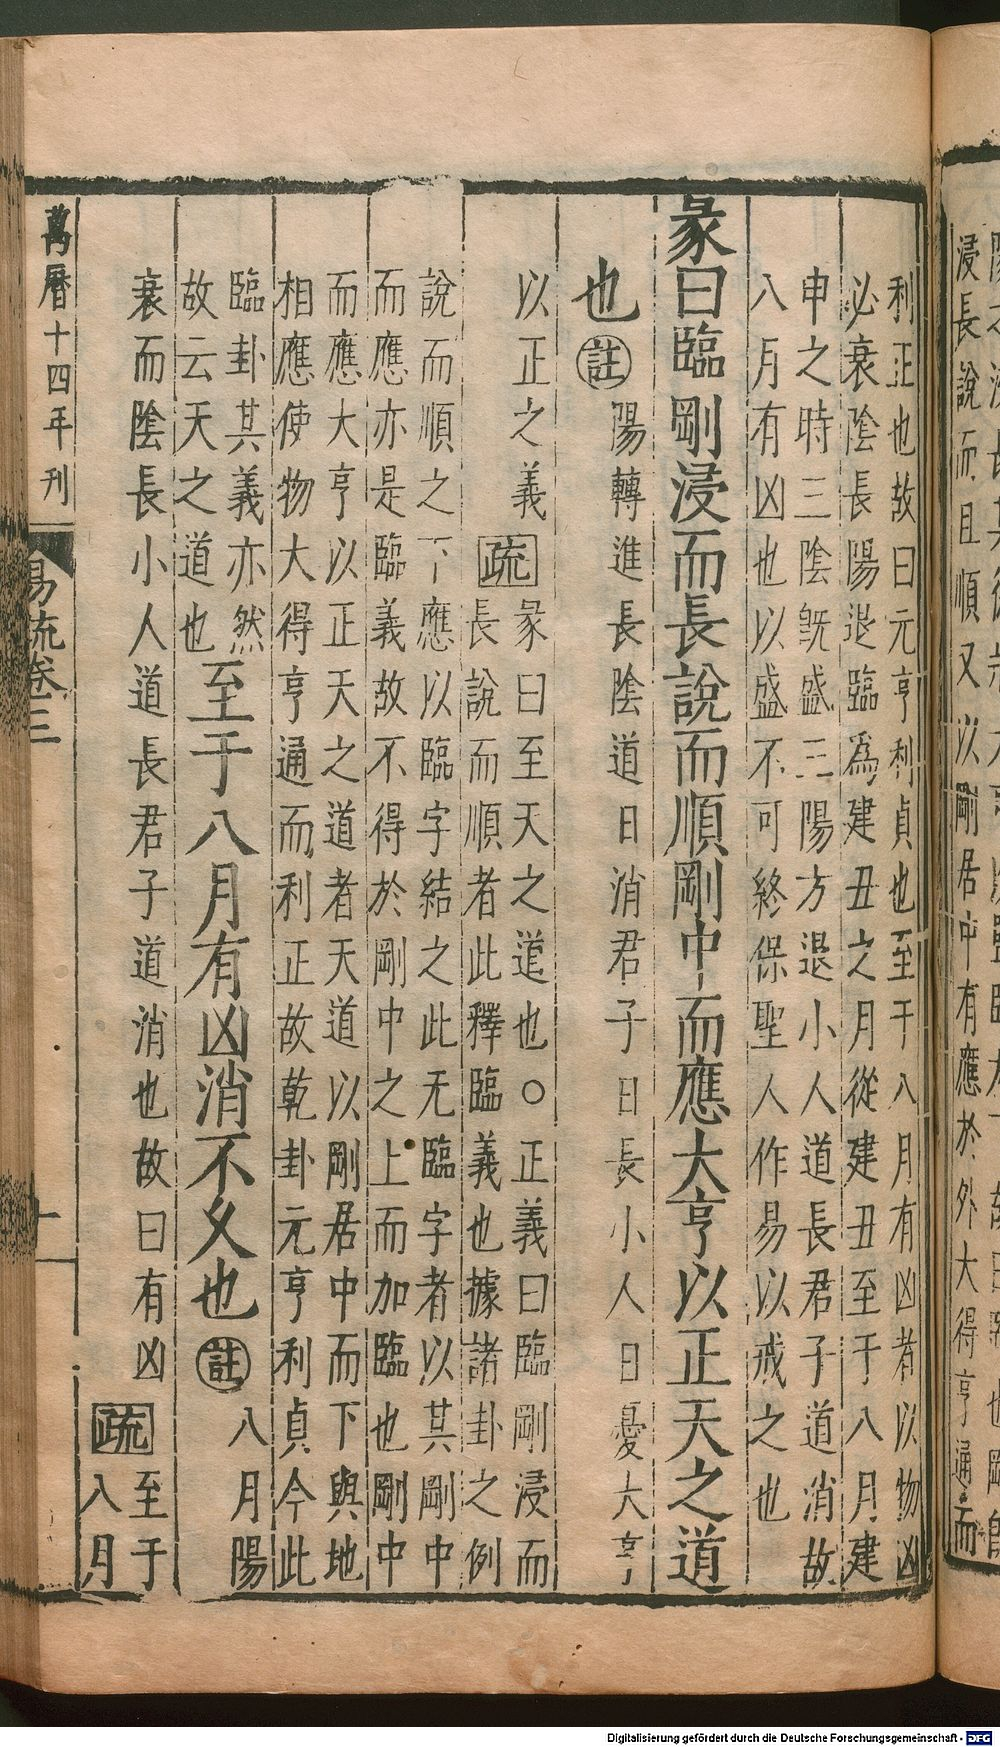 利正也故曰元亨利貞也至于八月有凶者以物凶
必衰陰長陽退臨為建丑之月從建丑至于八月建
申之時三陰旣盛三陽方退小人道長君子道消故
八月有凶也以盛不可終保聖人作易以戒之也
彖曰臨剛浸而長說而順剛中而應大亨以正天之道
也
註
陽轉進長陰道日消君子日長小人日憂大亨
以正之義
疏
彖曰至天之道也○正義曰臨剛浸而
長說而順者此釋臨義也據諸卦之例
說而順之下應以臨字結之此无臨字者以其剛中
而應亦是臨義故不得於剛中之上而加臨也剛中
而應大亨以正天之道者天道以剛居中而下與地
相應使物大得亨通而利正故乾卦元亨利貞今此
臨卦其義亦然
故云天之道也
至于八月有凶消不久也
註
八月陽
衰而陰長小人道長君子道消也故曰有凶
疏
至于
八月
萬曆十四年刊
易疏卷三
十
浸長說而且順又以剛居中有應於外大得亨通而
Digitalisierung gefördert durch die Deutsche Forschungsgemeinschaft - DFG